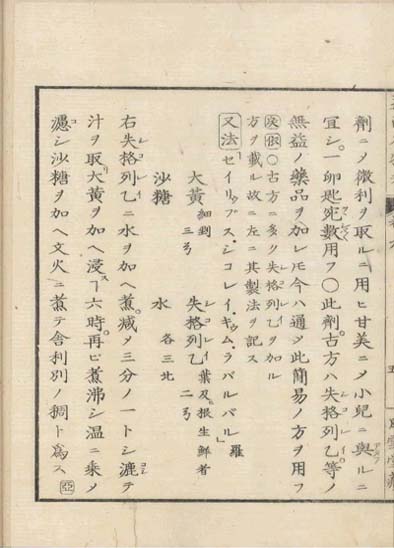 劑ニメ微利ヲ取ルニ用ヒ甘美ニメ小兒ニ與ルニ
宜シ。一卯匙死數用フ〇此劑古方ハ失格列乙等ノ
無益ノ藥品ヲ加レ𪜈今ハ通ノ此簡易ノ方ヲ用フ
〇古方ニ多ク失格列乙ヲ加ル
方ヲ載ル故ニ左ニ其製法ヲ記ス
又法 セイリュプス・シコレイ・キュム・ラバルバル 羅
大黄 細剉 三ヲ 失格列乙 葉及根生鮮者 二ヲ
沙糖 水 各三北
右失格列乙ニ水ヲ加ヘ煮。減メ三分ノ一トシ漉テ
汁ヲ取大黄ヲ加ヘ浸スヿ六時。再ビ煮沸シ温ニ乘メ
濾シ沙糖ヲ加ヘ文火ニ煮テ舎利別ノ稠ト爲ス 亞